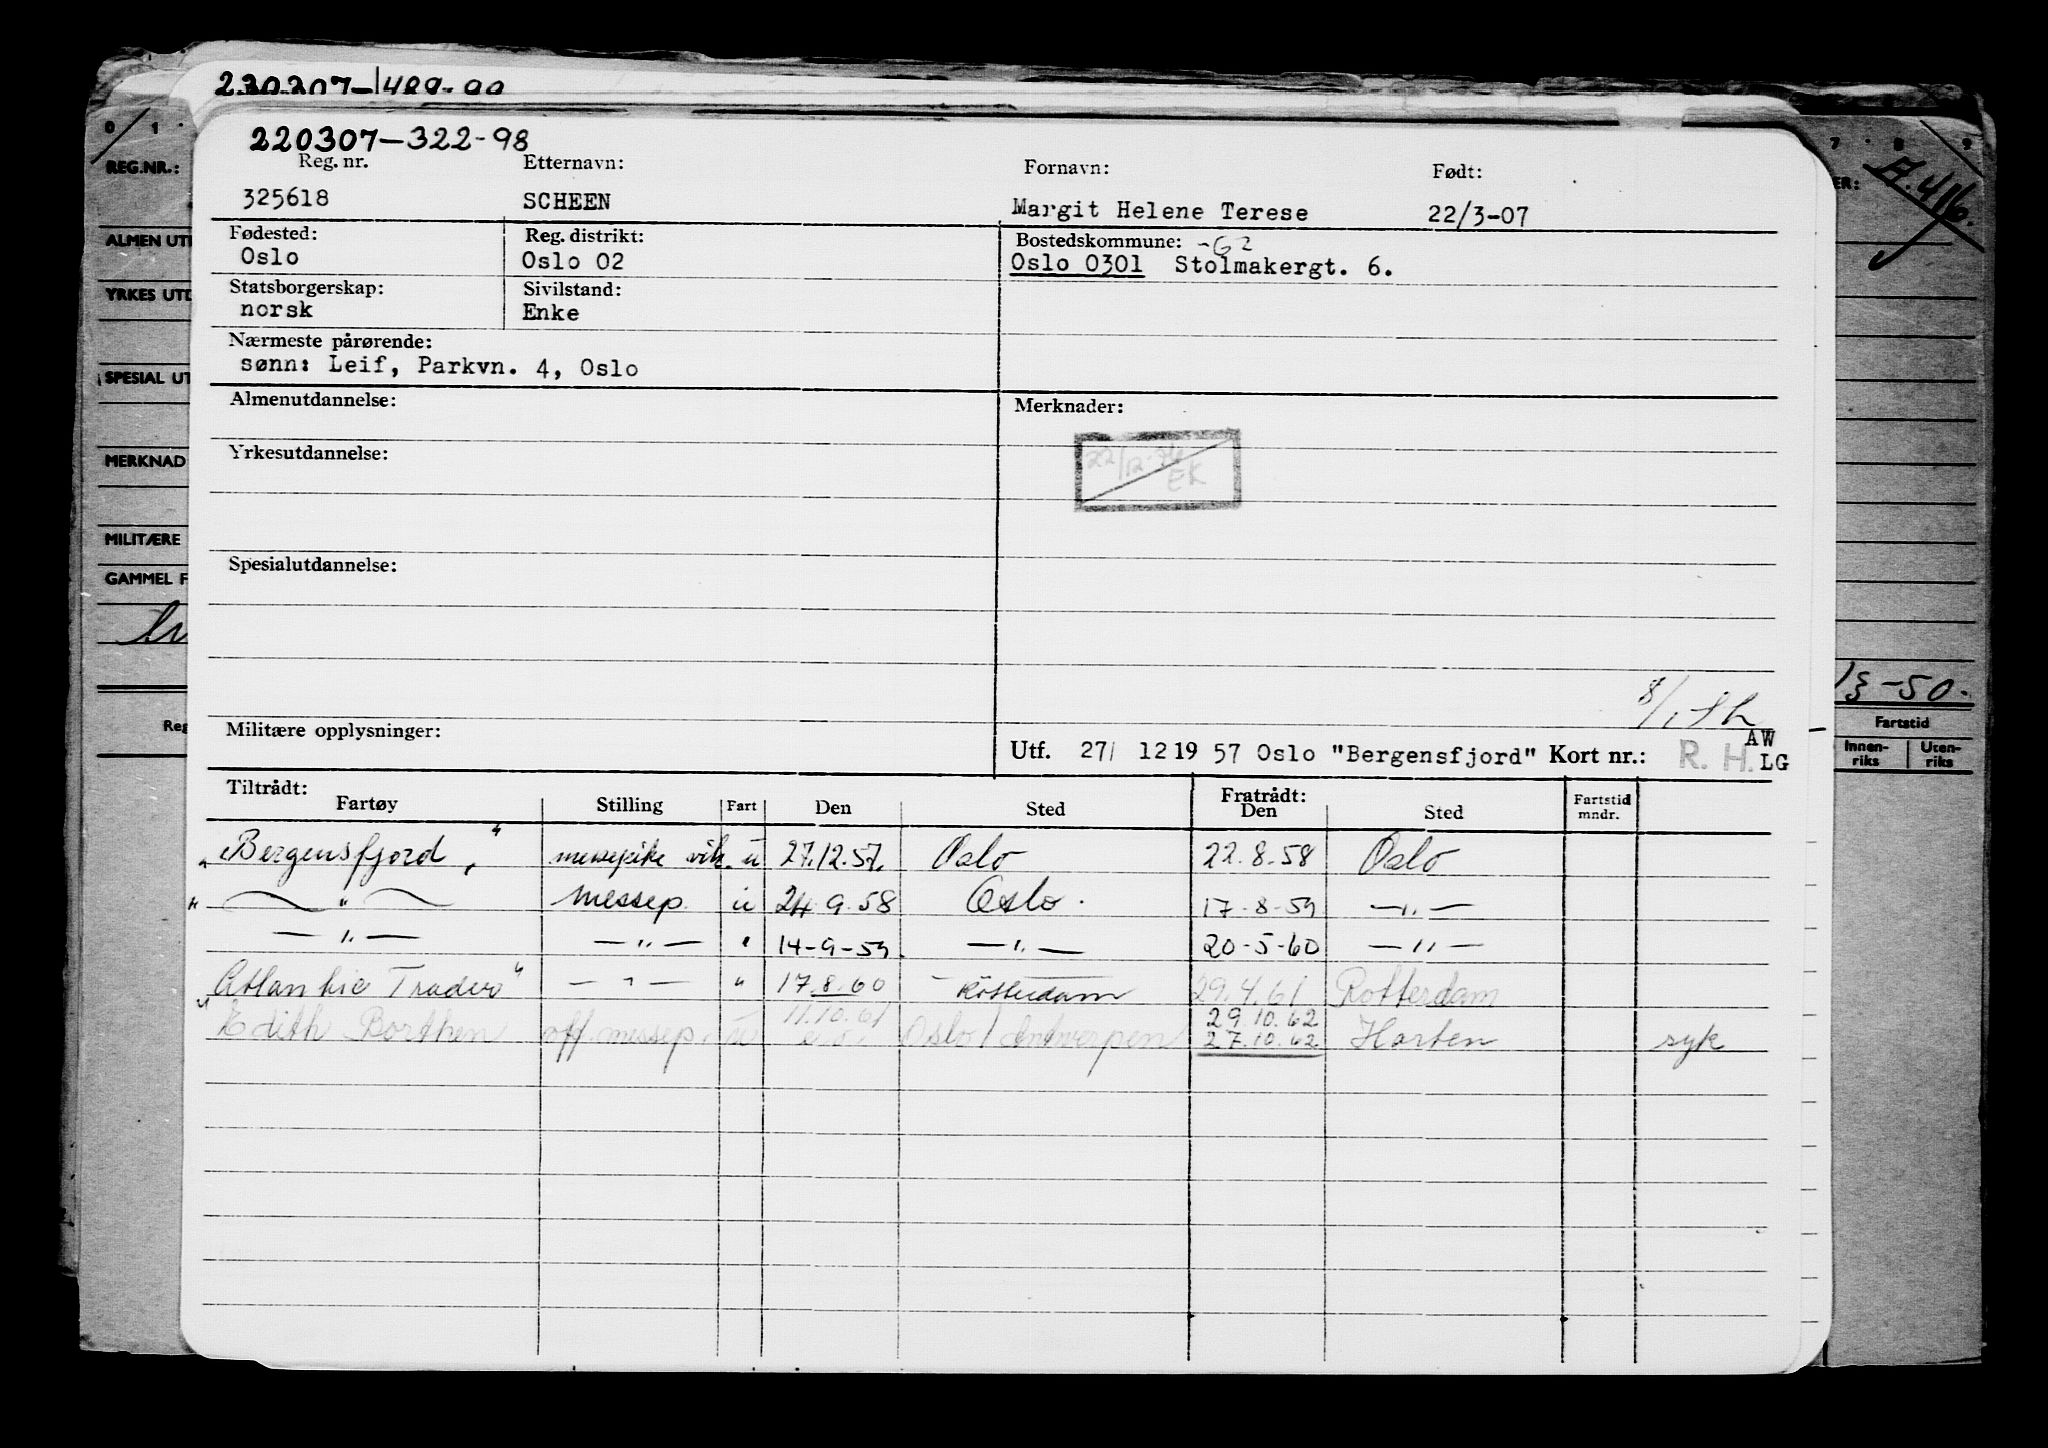 230307-1489-99
220307-322-98
Reg. nr. Etternavn: Fornavn: Født:
325618 SCHEEN Margit Helene Terese 22/3-07
Fødested: Reg. distrikt: Bostedskommune: -G2
Oslo Oslo 02 Oslo 0301 Stolmakergt. 6.
Statsborgerskap: Sivilstand:
norsk Enke
Nærmeste pårørende:
sønn: Leif, Parkvn. 4, Oslo
Almenutdannelse: Merknader:
Yrkesutdannelse:
EK
Spesialutdannelse:
Militære opplysninger:
Utf. 27/ 12 19 57 Oslo "Bergensfjord" Kort nr.: R. H. AW LG
Tiltrådt: Fratrådt:
Fartøy Stilling Fart Den Sted Den Sted Fartstid mndr.
"Bergensfjord" messepike vik. u 27.12.57. Oslo 22.8.58 Oslo
" — " — messep. u 24.9.58 Oslo. 17-8-59 — " —
— " — — " — " 14-9-59. — " — 20-5-60 — " —
Atlantic Trader" — " — " 17.8.60 Rotterdam 29.4.61 Rotterdam
11.10.61 29.10.62
"Edith Borthen off. messep. u Oslo/Antwerpen 27.10.62 Horten syk
0 1 7 8 9
REG.NR.:
A.416.
ALMEN UTD
YRKES UTD
SPESIAL UT
MERKNAD
MILITÆRE
GAMMEL F
Reg
-50.
Fartstid
Innenriks Utenriks